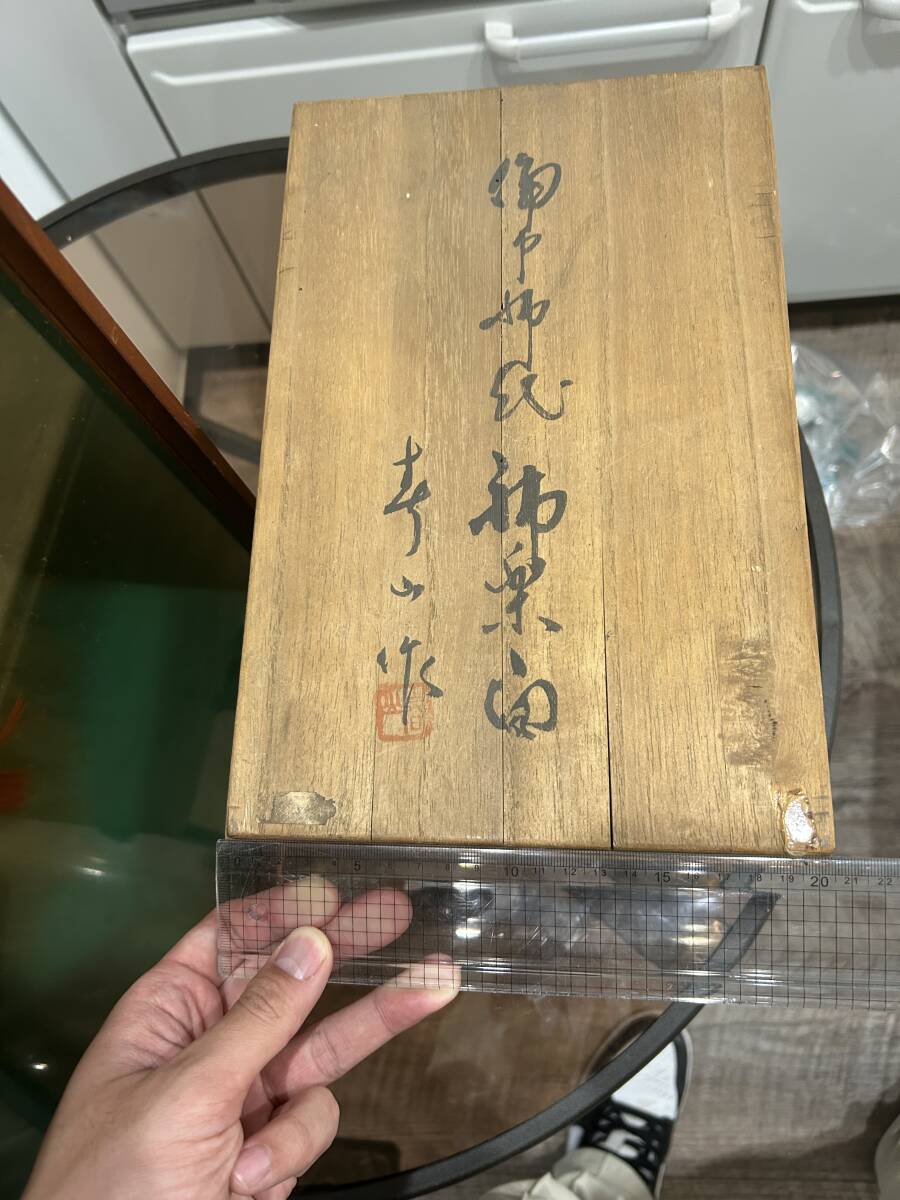 備中神代神楽面
寿山作
0 4 5 8 9 10 11 12 13 14 15 16 17 18 19 20 21 22